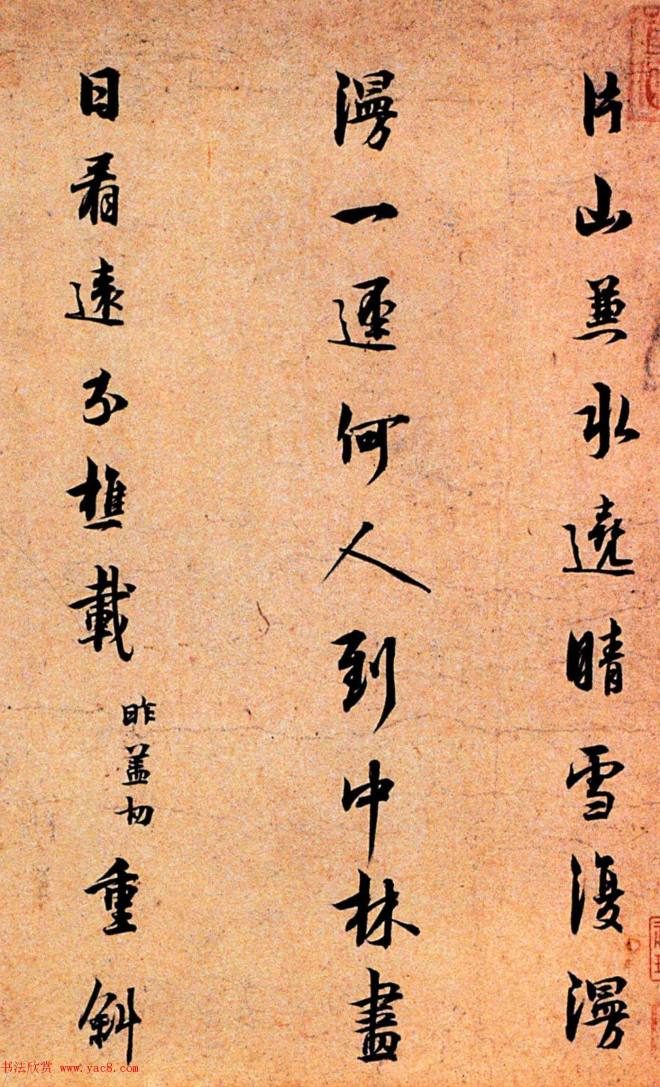 片山兼水遶晴雪復漫
漫一逕何人到中林盡
日看遠分樵載昨盖切重斜
书法欣赏 www.yac8.com